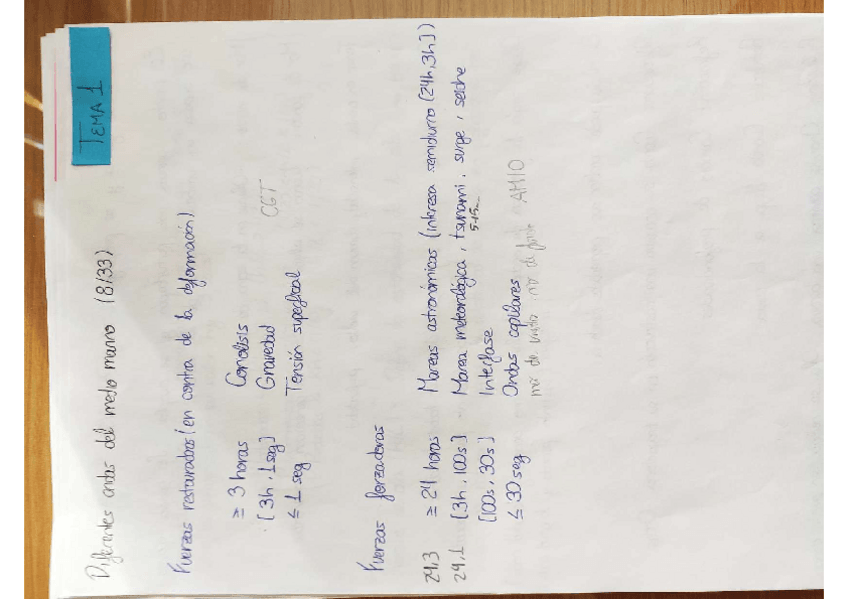 TEMA 1
Diferentes ondas del medio marino (8/33)
Fuerzas restauradoras (en contra de la deformación)
≥ 3 horas Coriolisis
[3h, 1seg] Gravedad CGT
≤ 1 seg Tensión superficial
Fuerzas forzadoras
24,3 ≥ 24 horas Mareas astronómicas (interesa semidiurno (24h,3h])
24,1 [3h, 100s] Marea meteorológica, tsunami, surge, seiche
5-15m
[100s, 30s] Interfase
≤ 30 seg Ondas capilares AMIO
mr de viento mr de fondo